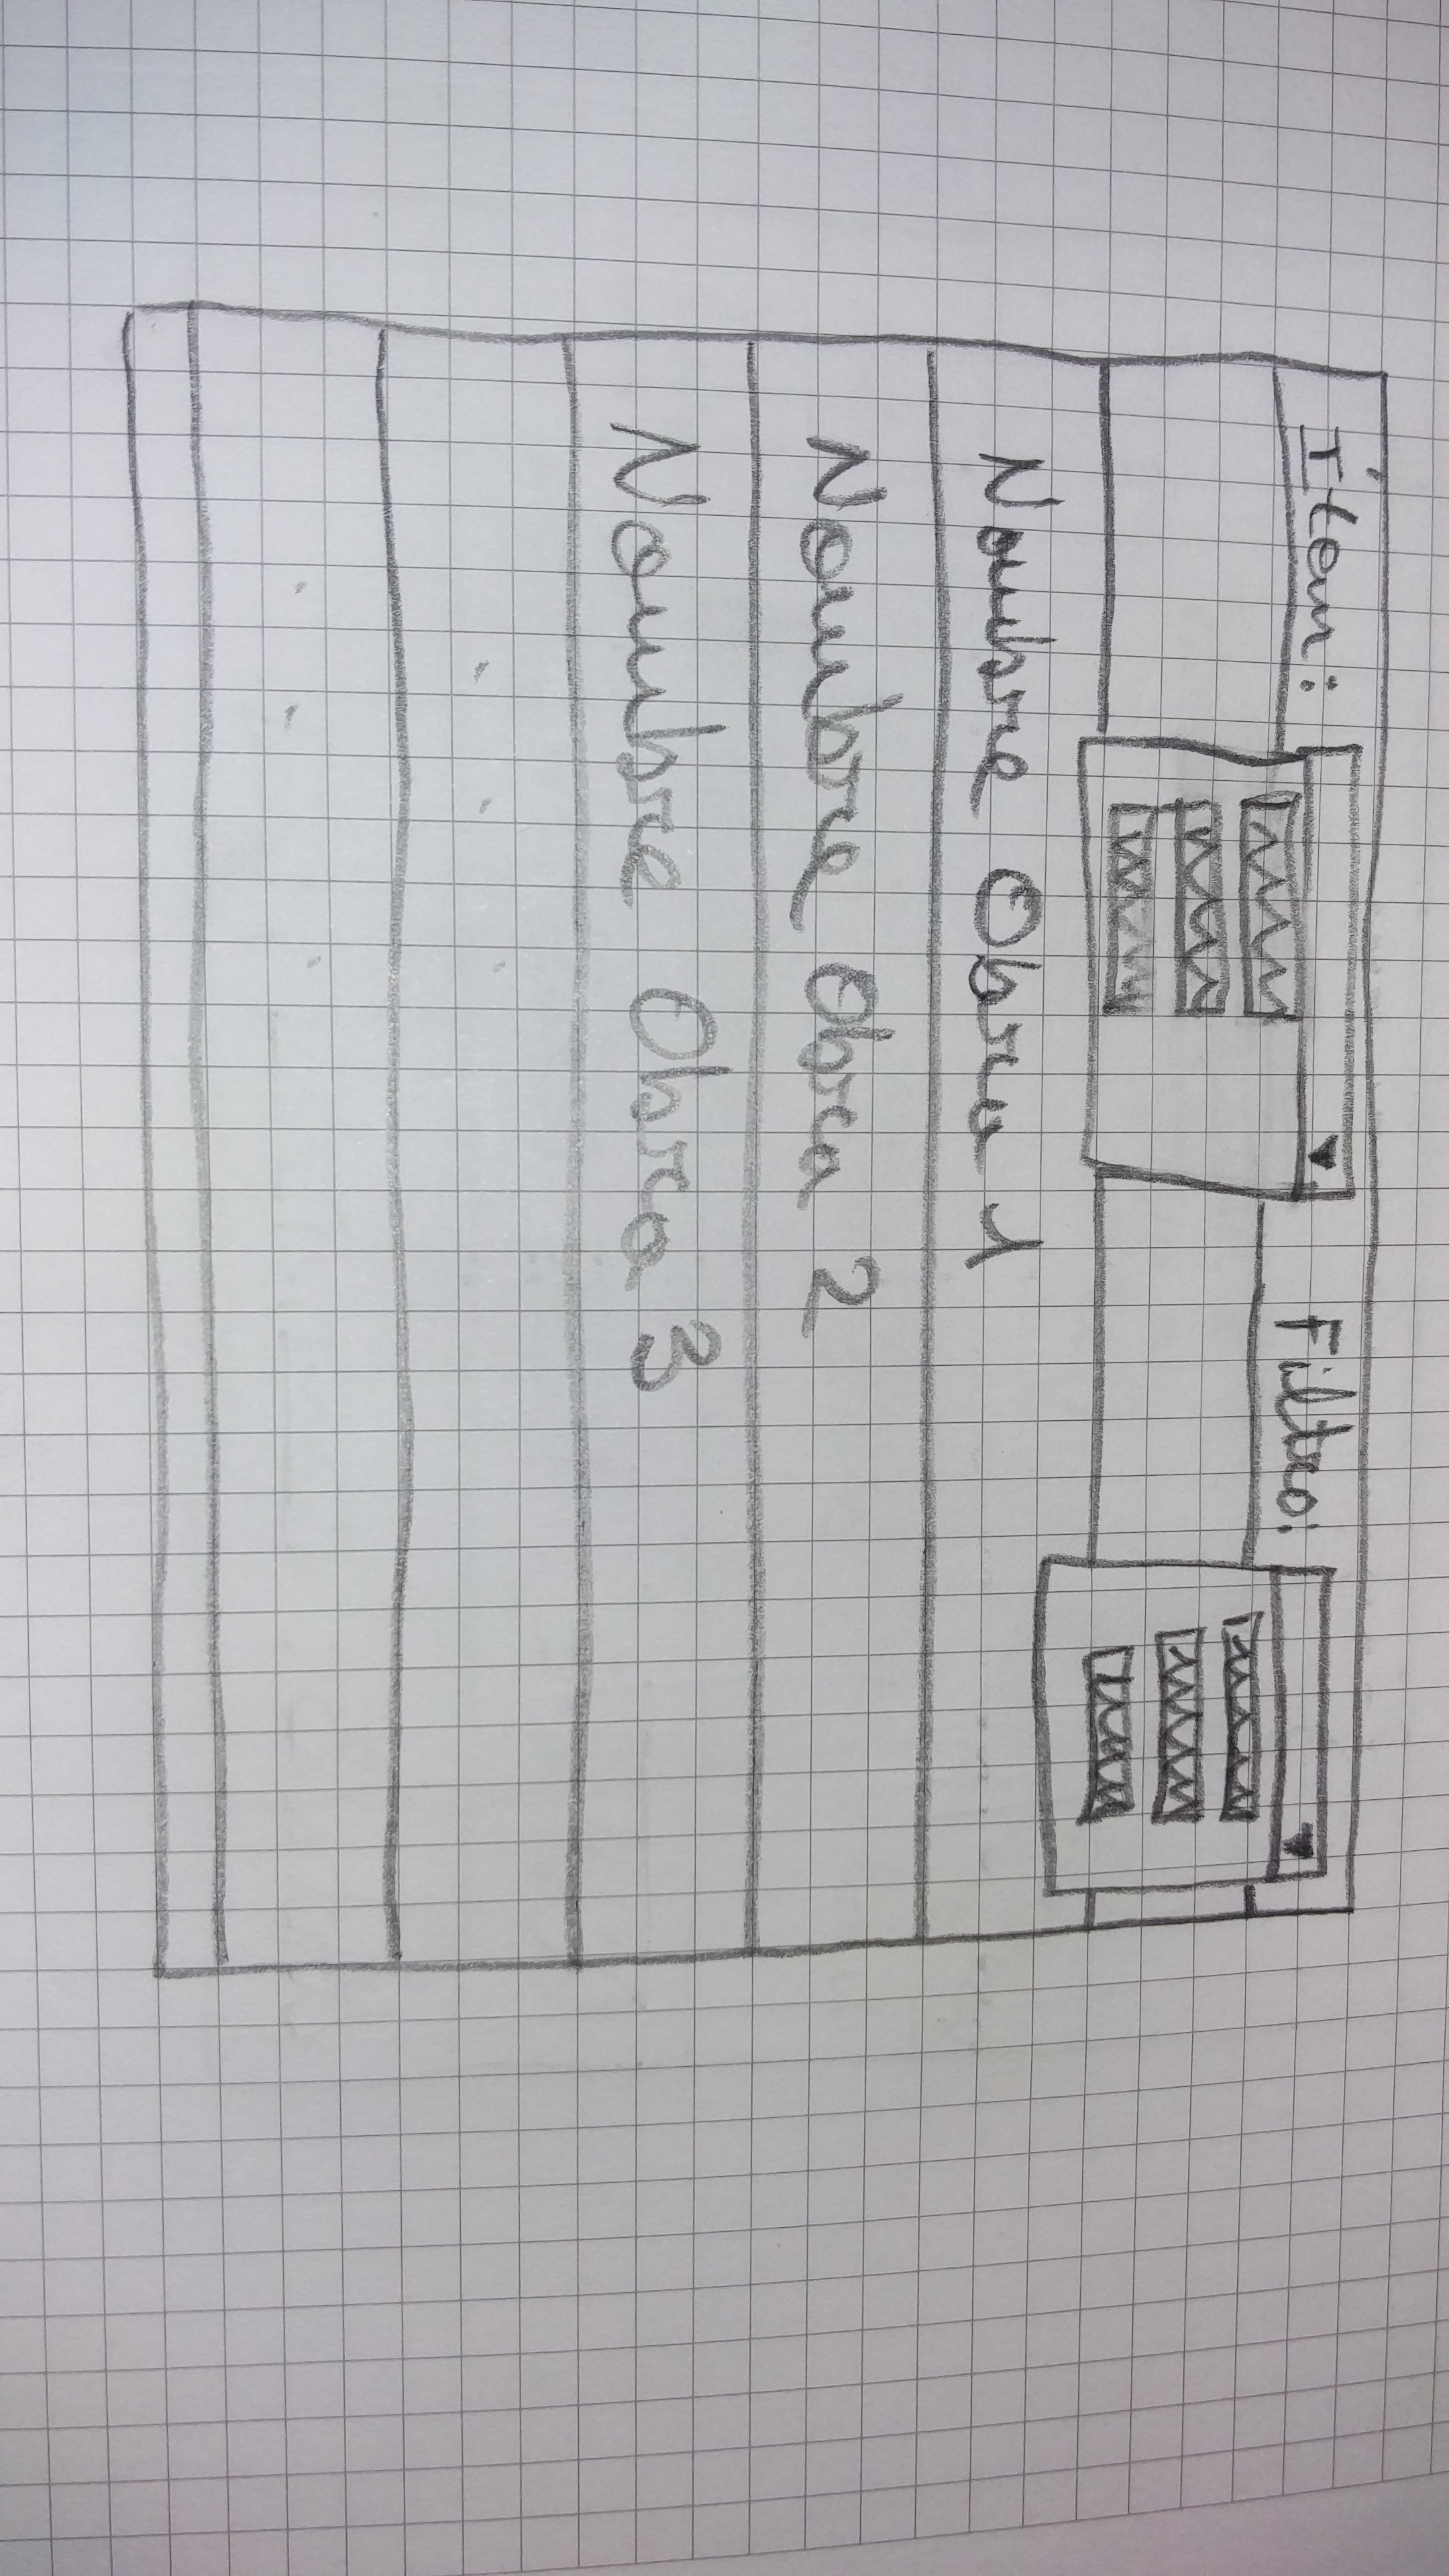 Item: Filtro:
Nombre Obra 1
Nombre Obra 2
Nombre Obra 3